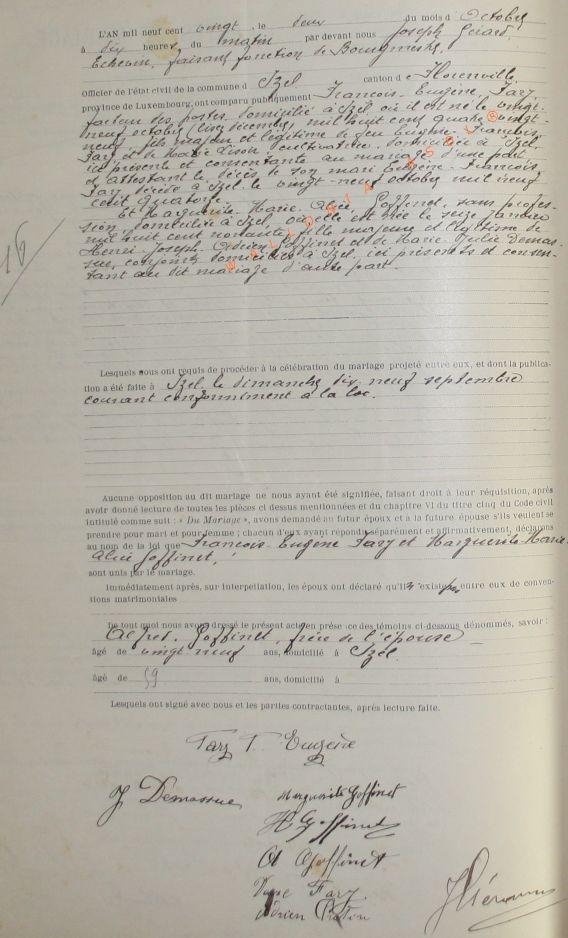 L'AN mil neuf cent vingt, le deux du mois d'Octobre
à dix heures du matin par devant nous Joseph Gérard,
Echevin, faisant fonction de Bourgmestre
Officier de l'état civil de la commune d'Izel canton de Florenville
province de Luxembourg, ont comparu publiquement François-Eugène Farz,
facteur des postes domicilié à Izel où il est né le vingt-
neuf octobre mil huit cent quatre vingt-
neuf, fils majeur et légitime de feu Eugène-François
Farz et de Marie cultivatrice, domiciliée à Izel,
ici présente et consentante au mariage d'une part,
et attestant le décès de son mari Eugène-François
Farz, décédé à Izel le vingt-neuf octobre mil neuf
cent quatorze.
Et Marguerite-Marie-Alice Goffinet, sans profes-
sion, domiciliée à Izel où elle est née le seize janvier
mil huit cent nonante, fille majeure et légitime de
Henri-Joseph-Adrien Goffinet et de Marie-Julie Demas-
sue, conjoints domiciliés à Izel, ici présents et consen-
tant au dit mariage d'autre part.
16
Lesquels nous ont requis de procéder à la célébration du mariage projeté entre eux, et dont la publica-
tion a été faite à Izel, le dimanche dix-neuf septembre
courant conformément à la loi.
Aucune opposition au dit mariage ne nous ayant été signifiée, faisant droit à leur réquisition, après
avoir donné lecture de toutes les pièces ci dessus mentionnées et du chapitre VI du titre cinq du Code civil
intitulé comme suit : « Du Mariage », avons demandé au futur époux et à la future épouse s'ils veulent se
prendre pour mari et pour femme ; chacun d'eux ayant répondu séparément et affirmativement, déclarons
au nom de la loi que François-Eugène Farz et Marguerite-Marie-
Alice Goffinet,
sont unis par le mariage.
Immédiatement après, sur interpellation, les époux ont déclaré qu'il n'existe pas entre eux de conven-
tions matrimoniales
De tout quoi nous avons dressé le présent acte en présence des témoins ci-dessous dénommés, savoir :
Alfred Goffinet, frère de l'épouse
âgé de vingt-neuf ans, domicilié à Izel.
âgé de 59 ans, domicilié à
Lesquels ont signé avec nous et les parties contractantes, après lecture faite.
Farz F. Eugène
J Demassue
Marguerite Goffinet
H Goffinet
A Goffinet
Farz
Adrien